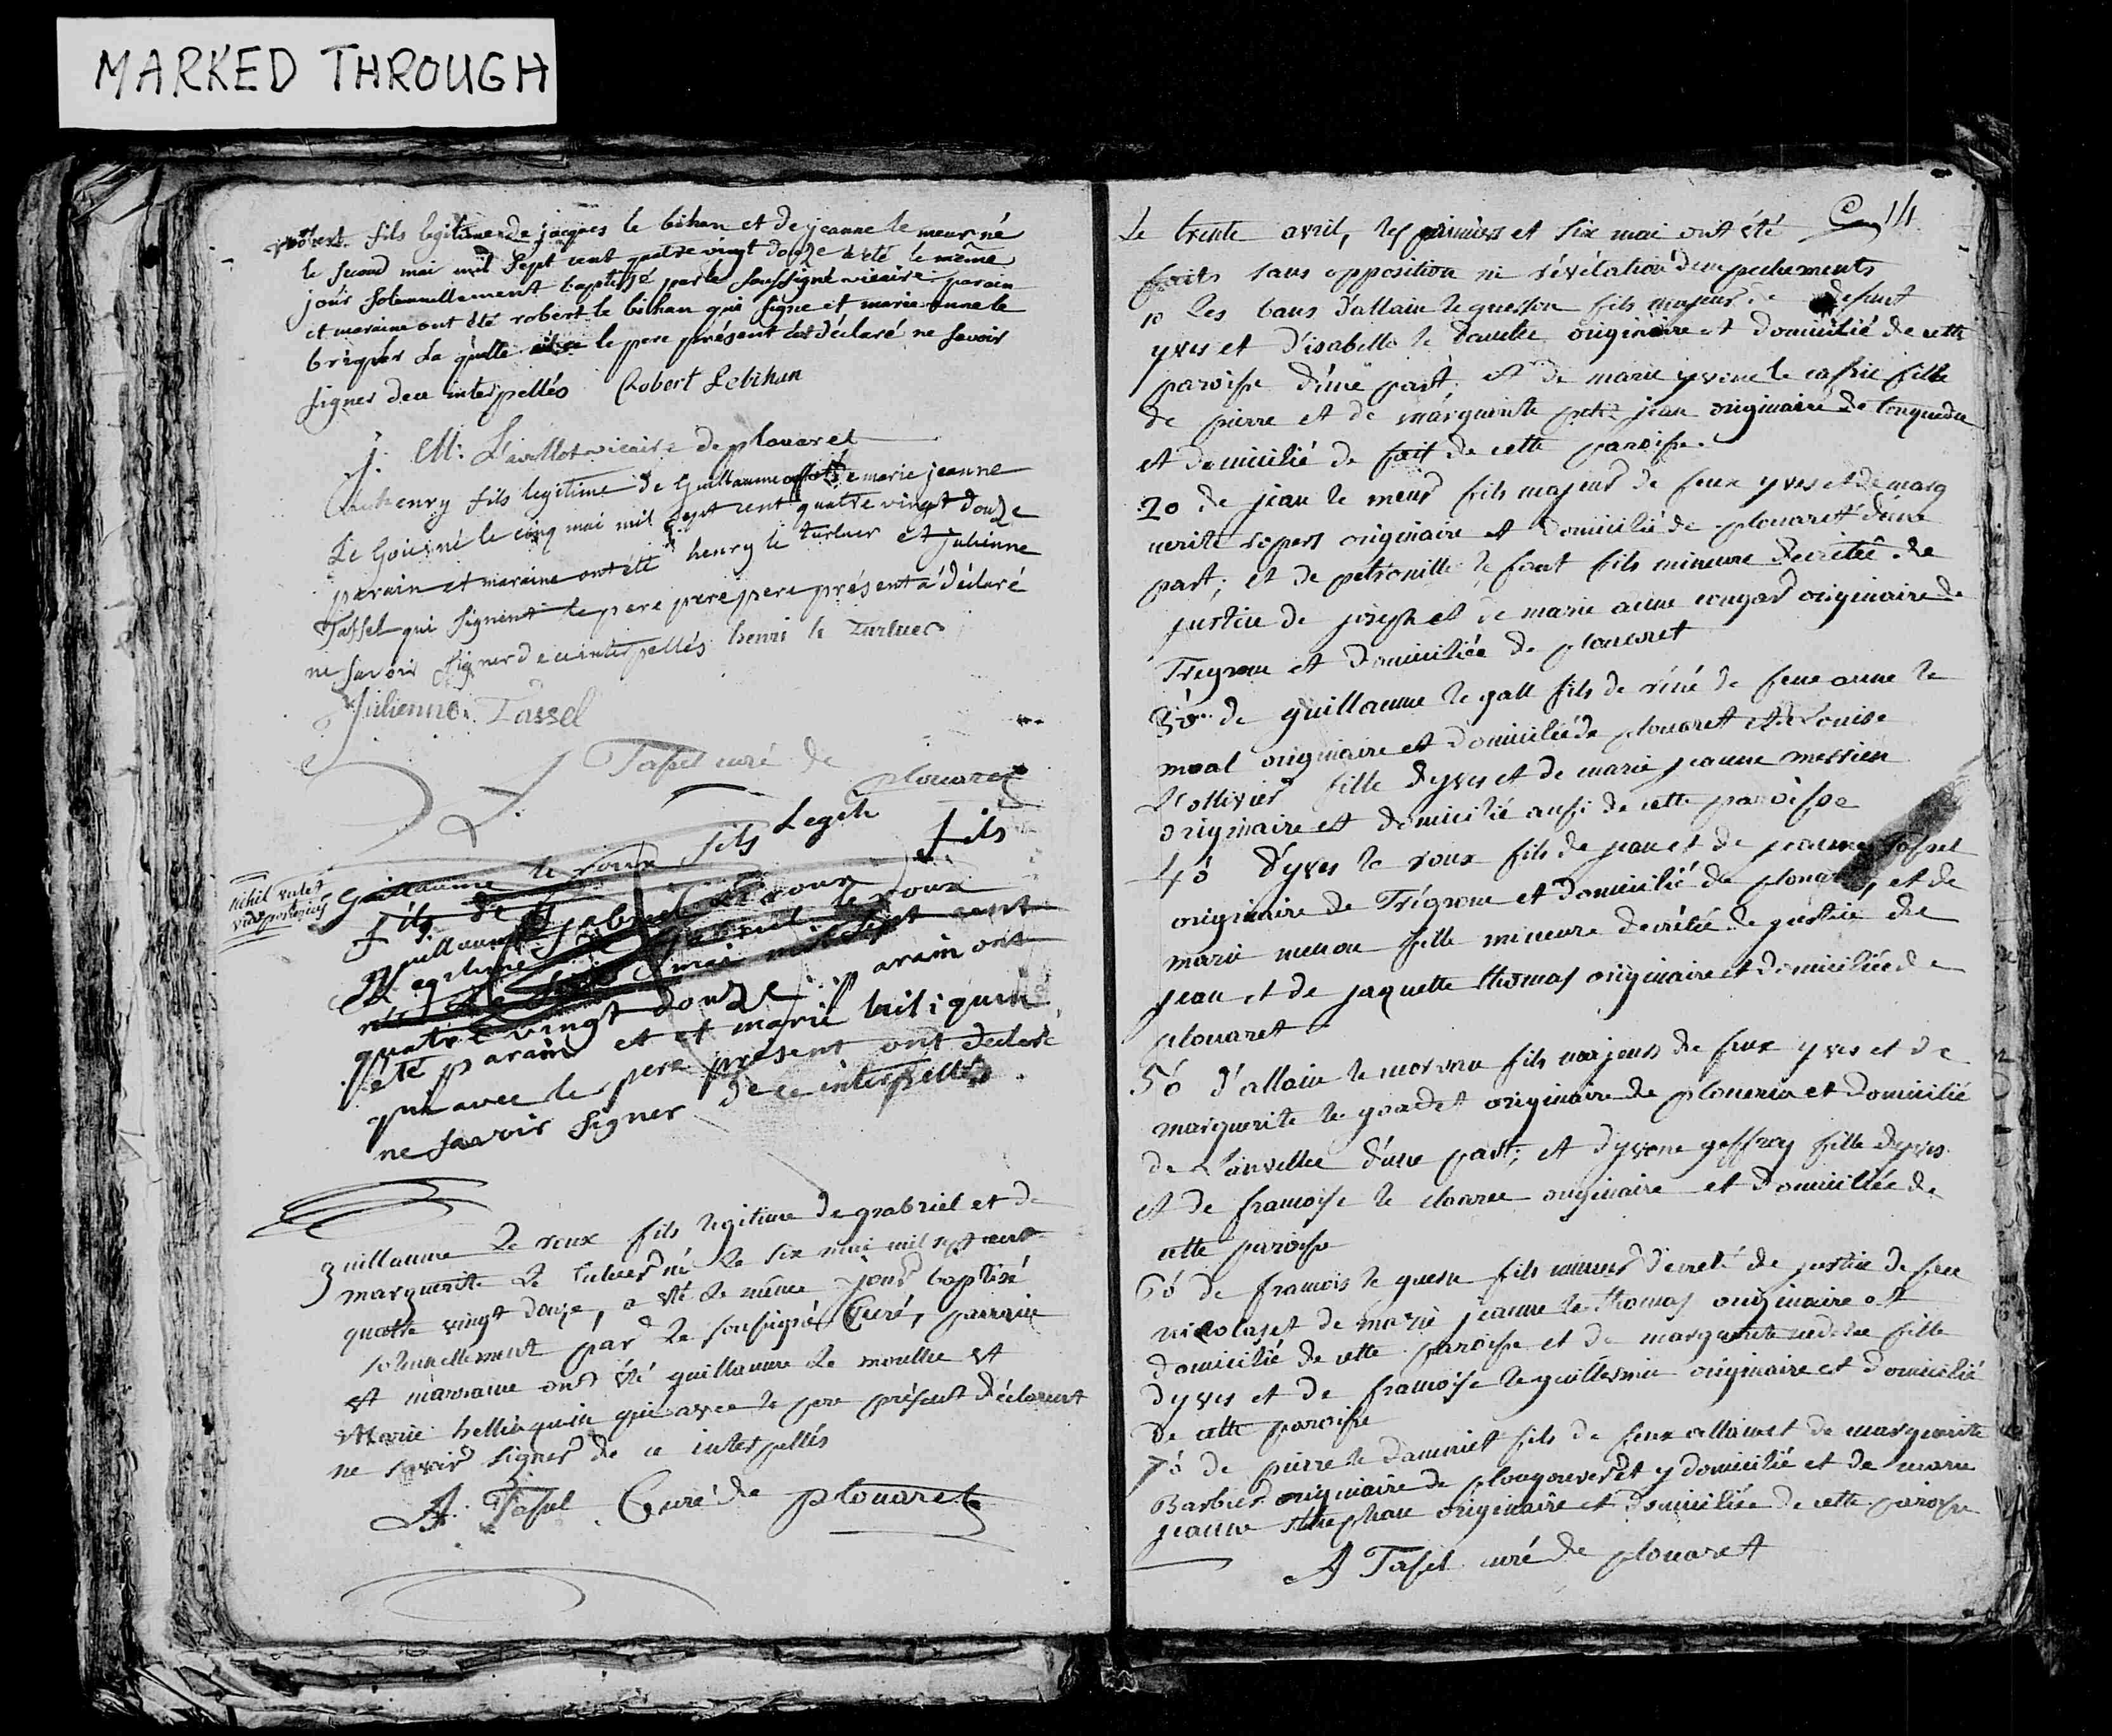 MARKED THROUGH
robert fils legitime de jacques le bihan et de jeanne le meur né
le second mai mil sept cent quatre vingt douze a été le même
jour solennellement baptisé par le soussigné vicaire parain
et maraine ont été robert le bihan qui signe et marie anne le
la quelle le pere présent declaré ne savoir
signer de ce interpellés Robert Lebihan
j. M. vicaire de plouaret
henry fils legitime de Guillaume et de marie jeanne
né le cinq mai mil sept cent quatre vingt douze
parain et maraine ont été henry le turluer et julienne
Tassel qui signent le pere pere pere présent a déclaré
ne savoir signer de ce interpellés henri le Turluer
Julienne Tassel
Tassel curé de
plouaret
nihil valet
vide posterius
Guillaume le roux fils Legit
fils
fils de
guillaume gabriel Le roux
Legitime gabriel le roux
né le six mai mil sept cent
quatre vingt douze parain ont
été parain et et marie
qui avec le pere présent ont declaré
ne savoir signer de ce interpellés
guillaume le roux fils legitime de gabriel et de
marguerite le né le six mai mil sept cent
quatre vingt douze, a été le même jour baptisé
solennellement par le soussigné Curé, parrain
et marraine ont été guillaume le et
Marie hellequin qui avec le pere présent déclarent
ne savoir signer de ce interpellés
A. Tassel Curé de plouaret
14
Le trente avril, les premiers et six mai ont été
faits sans opposition ni révélation d'empechements
1o les bans d'allain fils majeur de defunt
yves et d'isabelle le originaire et domicilié de cette
paroisse d'une part et de marie yvonne le fille
de pierre et de marguerite petit jean originaire de tonquedec
et domicilié de fait de cette paroisse.
2o de jean le meur fils majeur de feux yves et de marg
uerite ropers originaire et domicilié de plouaret d'une
part; et de petronille le font fille mineure decretée de
justice de joseph et de marie anne originaire de
Trégrom et domiciliée de plouaret
3o de guillaume le gall fils de réné de feue anne le
moal originaire et domicilié de plouaret et de Louise
L'ollivier fille d'yves et de marie jeanne
originaire et domicilié aussi de cette paroisse
4o d'yves le roux fils de jean et de jeanne Tassel
originaire de Trégrom et domicilié de plouaret, et de
marie menou fille mineure decretée de justice de
jean et de jaquette thomas originaire et domiciliée de
plouaret
5o d'allain le morvan fils majeur de feux yves et de
marguerite le originaire de plounerin et domicilié
de Lanvellec d'une part; et d'yvonne geffroy fille d'yves
et de françoise le originaire et domiciliée de
cette paroisse
6o de francois le guern fils mineur decreté de justice de feu
nicolas et de marie jeanne le thomas originaire et
domicilié de cette paroisse et de marguerite fille
d'yves et de françoise le guillermic originaire et domicilié
de cette paroisse
7o de pierre le fils de feux allain et de marguerite
Barbier originaire de plougonver et y domicilié et de marie
jeanne originaire et domiciliée de cette paroisse
A Tassel curé de plouaret